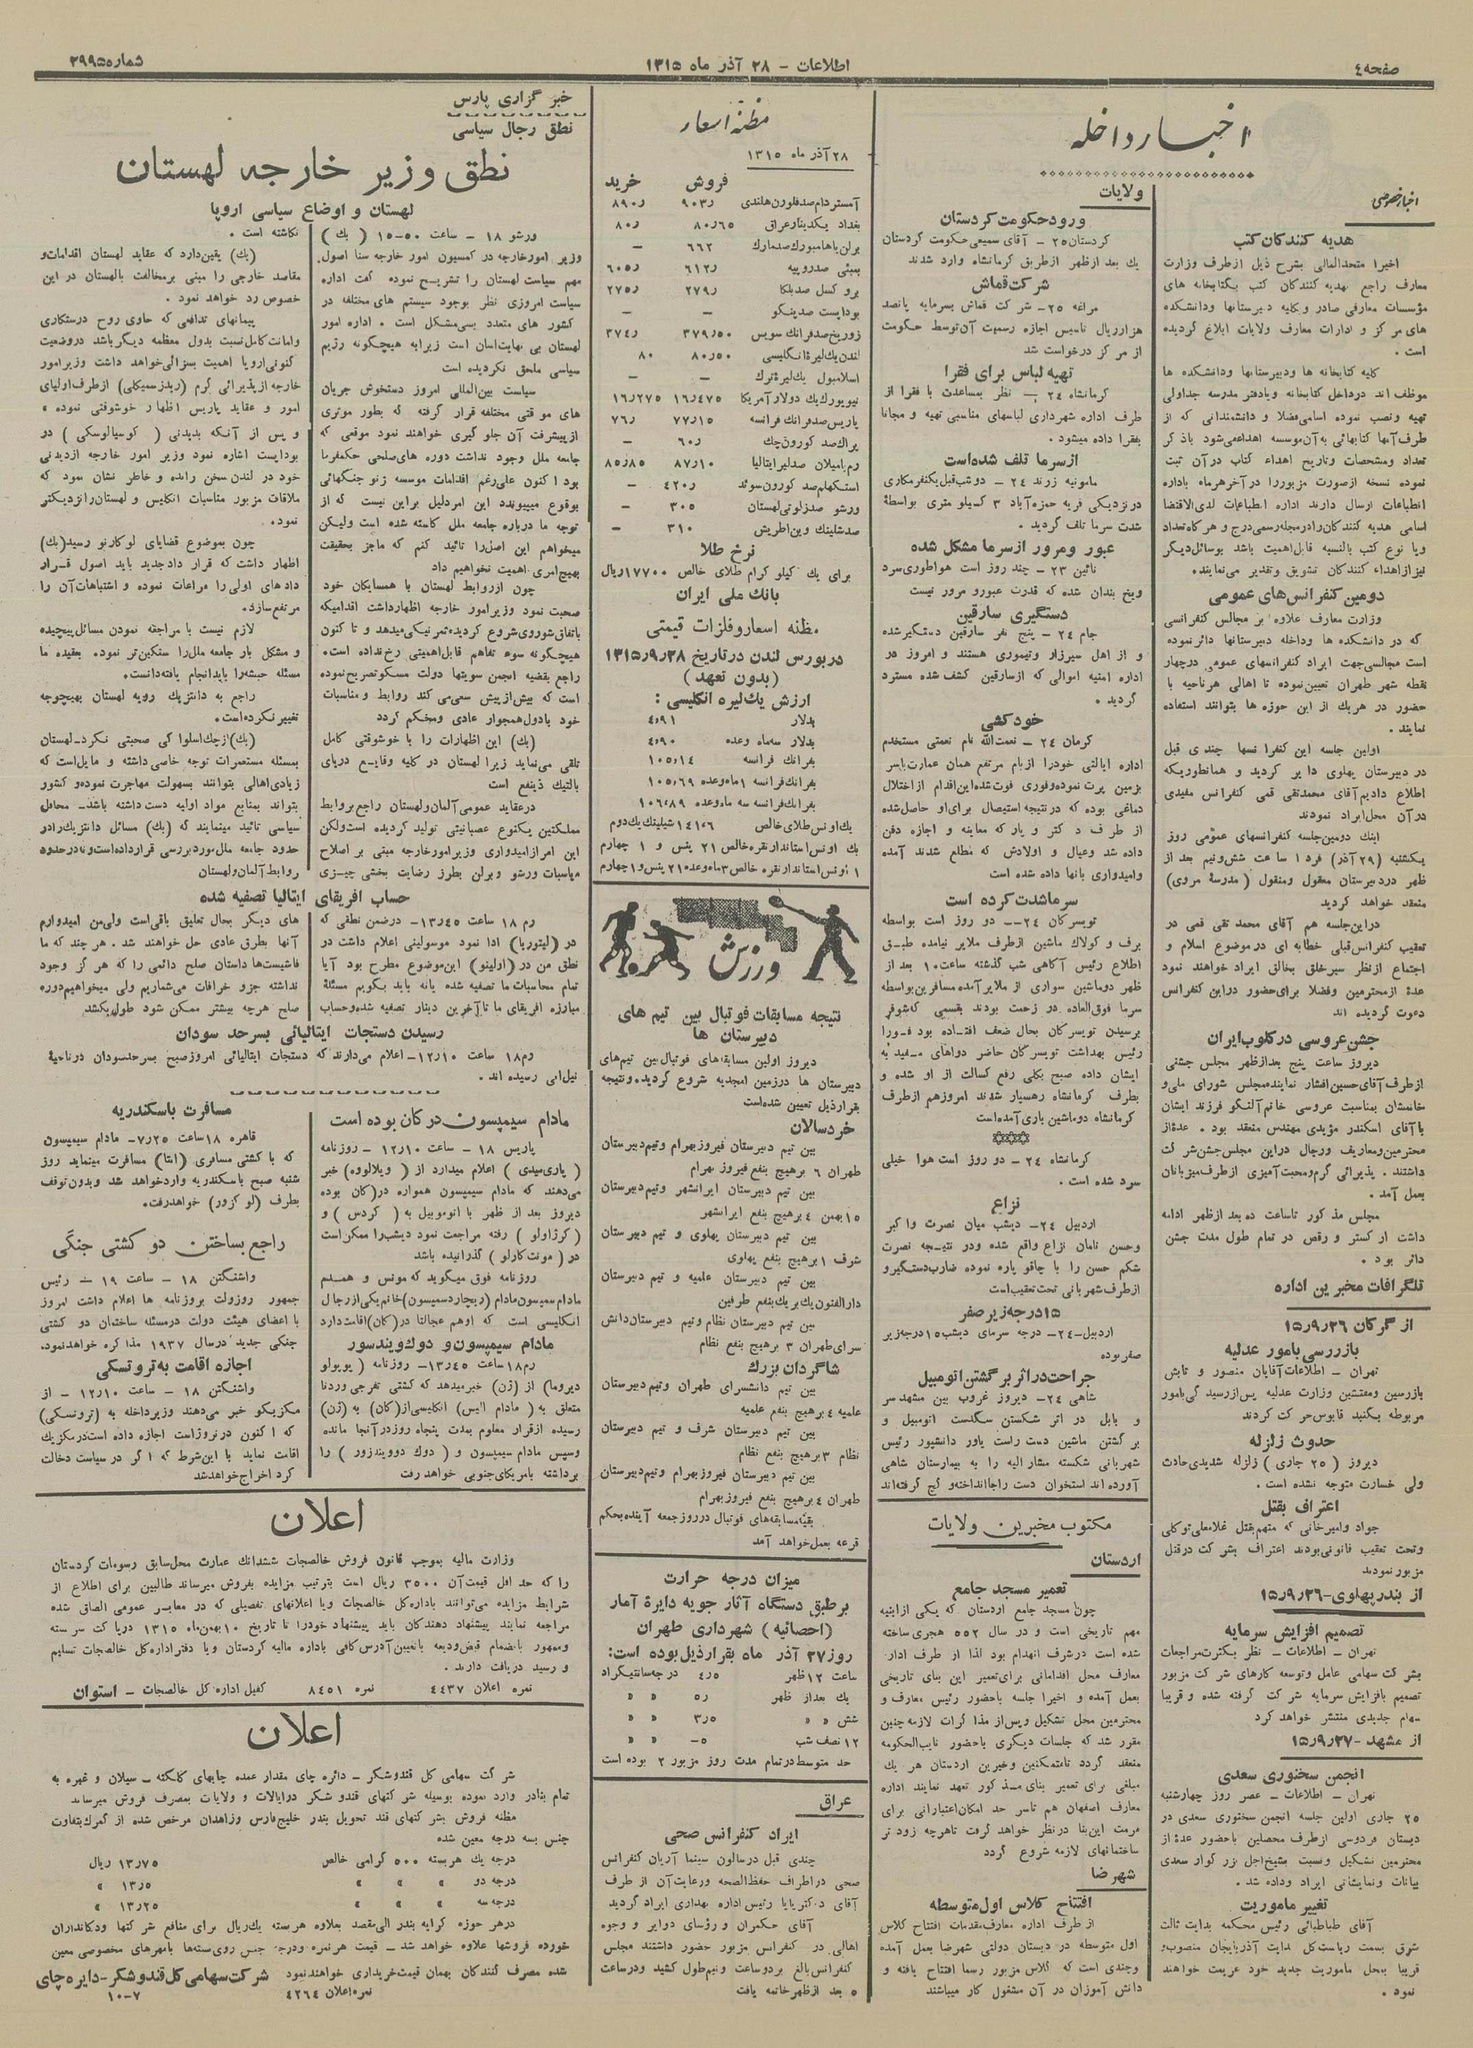 صفحه۴
اطلاعات - ۲۸ آذر ماه ۱۳۱۵
شماره۲۹۹۵
اخبار داخله
اخبار خصوصی
هدیه کنندگان کتب
اخیرا متحدالمالی بشرح ذیل ازطرف وزارت
معارف راجع بهدیه کنندگان کتب بکتابخانه های
مؤسسات معارفی صادر وبکلیه دبیرستانها ودانشکده
های مرکز و ادارات معارف ولایات ابلاغ گردیده
است .
کلیه کتابخانه ها ودبیرستانها ودانشکده ها
موظف اند درداخل کتابخانه ویادفتر مدرسه جداولی
تهیه ونصب نموده اسامی فضلا و دانشمندانی که از
طرف آنها کتابهائی به آن موسسه اهداعمی شود باذکر
تعداد ومشخصات وتاریخ اهداء کتاب درآن ثبت
نموده نسخه ازصورت مزبوررا درآخرهرماه باداره
انطباعات ارسال دارند اداره انطباعات لدی الاقتضا
اسامی هدیه کنندگان رادرمجله رسمی درج و هرگاه تعداد
ویا نوع کتب بالنسبه قابل اهمیت باشد بوسائل دیگر
نیز ازاهداء کنندگان تشویق وتقدیر می نمایند.
دومین کنفرانس های عمومی
وزارت معارف علاوه بر مجالس کنفرانسی
که در دانشکده ها وداخله دبیرستانها دائر نموده
است مجالسی جهت ایراد کنفرانسهای عمومی درچهار
نقطه شهر طهران تعیین نموده تا اهالی هرناحیه با
حضور در هریک از این حوزه ها بتوانند استفاده
نمایند .
اولین جلسه این کنفرانسها چندی قبل
در دبیرستان پهلوی دایر گردید و همانطوریکه
اطلاع دادیم آقای محمدتقی قمی کنفرانس مفیدی
درآن محل ایراد نمودند
اینک دومین جلسه کنفرانسهای عمومی روز
یکشنبه (۲۹ آذر) فردا ساعت شش ونیم بعد از
ظهر در دبیرستان معقول ومنقول (مدرسه مروی)
منعقد خواهد گردید
دراین جلسه هم آقای محمد تقی قمی در
تعقیب کنفرانس قبلی خطابه ای درموضوع اسلام و
اجتماع ازنظر سیر خلق بخالق ایراد خواهند نمود
عدهٔ ازمحترمین وفضلا برای حضور دراین کنفرانس
دعوت گردیده اند
جشن عروسی درکلوب ایران
دیروز ساعت پنج بعدازظهر مجلس جشنی
ازطرف آقای حسین افشار نماینده مجلس شورای ملی و
خانمشان بمناسبت عروسی خانم آلنگو فرزند ایشان
باآقای اسکندر مؤیدی مهندس منعقد بود . عدهٔ از
محترمین ومعاریف ورجال دراین مجلس جشن شرکت
داشتند . پذیرائی گرم ومحبت آمیزی ازطرف میزبانان
بعمل آمد .
مجلس مذکور تاساعت ده بعد ازظهر ادامه
داشت ارکستر و رقص در تمام طول مدت جشن
دائر بود .
تلگرافات مخبرین اداره
از گرگان ۱۵٫۹٫۲۶
بازررسی بامور عدلیه
تهران - اطلاعات آقایان منصور و تابش
بازرسین ومفتشین وزارت عدلیه پس ازرسیدگی بامور
مربوطه بگنبد قابوس حرکت کردند
حدوث زلزله
دیروز (۲۵ جاری) زلزله شدیدی حادث
ولی خسارت متوجه نشده است .
اعتراف بقتل
جواد وامیرخانی که متهم بقتل غلامعلی توکلی
وتحت تعقیب قانونی بودند اعتراف بشرکت درقتل
مزبور نمودند
از بندرپهلوی-۱۵٫۹٫۲۶
تصمیم افزایش سرمایه
تهران - اطلاعات - نظر بکثرت مراجعات
بشرکت سهامی عامل وتوسعه کارهای شرکت مزبور
تصمیم بافزایش سرمایه شرکت گرفته شده و قریبا
سهام جدیدی منتشر خواهد کرد
از مشهد -۱۵٫۹٫۲۷
انجمن سخنوری سعدی
تهران - اطلاعات - عصر روز چهارشنبه
۲۵ جاری اولین جلسه انجمن سخنوری سعدی در
دبستان فردوسی ازطرف محصلین باحضور عدهٔ از
محترمین تشکیل ونسبت بشیخ اجل بزرگوار سعدی
بیانات ونمایشاتی ایراد وداده شد .
تغییر ماموریت
آقای طباطبائی رئیس محکمه بدایت ثالث
شرق بسمت ریاست کل بدایت آذربایجان منصوب و
قریبا بمحل ماموریت جدید خود عزیمت خواهند
نمود .
ولایات
ورود حکومت کردستان
کردستان ۲۵ - آقای سمیعی حکومت کردستان
یک بعد ازظهر ازطریق کرمانشاه وارد شدند
شرکت قماش
مراغه ۲۵ - شرکت قماش بسرمایه پانصد
هزارریال تاسیس اجازه رسمیت آن توسط حکومت
از مرکز درخواست شد
تهیه لباس برای فقرا
کرمانشاه ۲۴ - نظر بمساعدت با فقرا از
طرف اداره شهرداری لباسهای مناسبی تهیه و مجانا
بفقرا داده میشود .
ازسرما تلف شده است
مامونیه زرند ۲۴ - دوشب قبل یکنفرمکاری
درنزدیکی قریه حمزه آباد ۳ کیلو متری بواسطهٔ
شدت سرما تلف گردید .
عبور ومرور ازسرما مشکل شده
نائین ۲۳ - چند روز است هواطوری سرد
ویخ بندان شده که قدرت عبورو مرور نیست
دستگیری سارقین
جام ۲۴ - پنج نفر سارقین دستگیر شده
و از اهل سبرزار وتیموری هستند و امروز در
اداره امنیه اموالی که ازسارقین کشف شده مسترد
گردید .
خودکشی
کرمان ۲۴ - نعمت الله نام نعمتی مستخدم
اداره ایالتی خودرا ازبام مرتفع همان عمارت باسر
بزمین پرت نموده وفوری فوت شده این اقدام ازاختلال
دماغی بوده که درنتیجه استیصال برای او حاصل شده
از طرف دکتر و یارکه معاینه و اجازه دفن
داده شد وعیال و اولادش که مطلع شدند آمده
وامیدواری بانها داده شده است
سرماشدت کرده است
تویسرکان ۲۴ - دو روز است بواسطه
برف و کولاک ماشین ازطرف ملایر نیامده طبق
اطلاع رئیس آگاهی شب گذشته ساعت ۱۰ بعد از
ظهر دوماشین سواری از ملایر آمده مسافرین بواسطه
سرما فوق العاده در زحمت بودند بقسمی که شوفر
برسیدن تویسرکان بحال ضعف افتاده بود فورا
رئیس بهداشت تویسرکان حاضر دواهای مفید به
ایشان داده صبح بکلی رفع کسالت از او شده و
بطرف کرمانشاه رهسپار شدند امروزهم ازطرف
کرمانشاه دوماشین باری آمده است
کرمانشاه ۲۴ - دو روز است هوا خیلی
سرد شده است .
نزاع
اردبیل ۲۴- دیشب میان نصرت واکبر
وحسن نامان نزاع واقع شده ودر نتیجه نصرت
شکم حسن را با چاقو پاره نموده ضارب دستگیر و
ازطرف شهربانی تحت تعقیب است
۱۵درجه زیر صفر
اردبیل-۲۴- درجه سرمای دیشب ۱۵ درجه زیر
صفربوده
جراحت دراثر برگشتن اتومبیل
شاهی ۲۴- دیروز غروب بین مشهدسر
و بابل در اثر شکستن سگدست اتومبیل و
برگشتن ماشین دست راست یاور دانشپور رئیس
شهربانی شکسته مشارالیه را به بیمارستان شاهی
آورده اند استخوان دست راجاانداخته و گچ گرفته اند
مکتوب مخبرین ولایات
اردستان
تعمیر مسجد جامع
چون مسجد جامع اردستان که یکی ازابنیه
مهم تاریخی است و در سال ۵۵۲ هجری ساخته
شده است درشرف انهدام بود لذا از طرف اداره
معارف محل اقداماتی برای تعمیر این بنای تاریخی
بعمل آمده و اخیرا جلسه باحضور رئیس معارف و
محترمین محل تشکیل وپس از مذاکرات لازمه چنین
مقرر شد که جلسات دیگری باحضور نایب الحکومه
منعقد گردد تامتمکنین وخیرین اردستان هر یک
مبلغی برای تعمیر بنای مذکور تعهد نمایند اداره
معارف اصفهان هم تاسر حد امکان اعتباراتی برای
مرمت این بنا درنظر خواهد گرفت تاهرچه زودتر
ساختمانهای لازمه شروع گردد
شهرضا
افتتاح کلاس اول متوسطه
از طرف اداره معارف مقدمات افتتاح کلاس
اول متوسطه در دبستان دولتی شهرضا بعمل آمده
وچندی است که کلاس مزبور رسما افتتاح یافته و
دانش آموزان در آن مشغول کار میباشند
مظنه اسعار
۲۸آذر ماه ۱۳۱۵
فروش خرید
آمستردام صدفلورن هلندی ۹۰۳ر ۸۹۰ر
بغداد یکدینار عراق ۸۰٫۶۵ ۸۰ر
برلن باهامبورک صدمارک ۶۶۲ -
بمبئی صدروپیه ۶۱۲ر ۶۰۵ر
بروکسل صدبلگا ۲۷۹ر ۲۷۵ر
بوداپست صدپنگو - -
زوریخ صدفرانک سویس ۳۷۹٫۵۰ ۳۷۴ر
لندن یک لیرهٔ انگلیسی ۸۰٫۵۰ ۸۰
اسلامبول یک لیرهٔ ترک - -
نیویورک یک دولار آمریکا ۱۶٫۴۷۵ ۱۶٫۲۷۵
پاریس صدفرانک فرانسه ۷۷٫۱۵ ۷۶ر
پراک صد کورون چک ۶۰ر -
رم یامیلان صدلیرایتالیا ۸۷٫۱۰ ۸۵٫۸۵
استکهلم صد کورون سوئد ۴۲۰ر -
ورشو صدزلوتی لهستان ۳۰۵ -
صدشلینک وین اطریش ۳۱۰ -
نرخ طلا
برای یک کیلو گرام طلای خالص ۱۷۷۰۰ریال
بانک ملی ایران
مظنه اسعار و فلزات قیمتی
در بورس لندن در تاریخ ۱۳۱۵٫۹٫۲۸
(بدون تعهد)
ارزش یک لیره انگلیسی :
بدلار ۴٫۹۱
بدلار سه ماه وعده ۴٫۹۰
بفرانک فرانسه ۱۰۵٫۱۴
بفرانک فرانسه ۱ماه وعده ۱۰۵٫۶۹
بفرانک فرانسه سه ماه وعده ۱۰۶٫۸۹
یک اونس طلای خالص ۱۴۱٫۶ شیلینک یک دوم
یک اونس استاندار نقره خالص ۲۱ پنس و ۱ چهارم
۱ اونس استاندار نقره خالص ۳ماه وعده ۲۱ پنس و ۱ چهارم
ورزش
نتیجه مسابقات فوتبال بین تیم های
دبیرستان ها
دیروز اولین مسابقه های فوتبال بین تیم های
دبیرستان ها درزمین امجدیه شروع گردید. ونتیجه
بقرارذیل تعیین شده است
خردسالان
بین تیم دبیرستان فیروزبهرام وتیم دبیرستان
طهران ۶ برهیچ بنفع فیروز بهرام
بین تیم دبیرستان ایرانشهر وتیم دبیرستان
۱۵بهمن ۴ برهیچ بنفع ایرانشهر
بین تیم دبیرستان پهلوی و تیم دبیرستان
شرف ۱ برهیچ بنفع پهلوی
بین تیم دبیرستان علمیه و تیم دبیرستان
دارالفنون یک بریک بنفع طرفین
بین تیم دبیرستان نظام وتیم دبیرستان دانش
سرای طهران ۳ برهیچ بنفع نظام
شاگردان بزرک
بین تیم دانشسرای طهران وتیم دبیرستان
علمیه ۴ برهیچ بنفع علمیه
بین تیم دبیرستان شرف و تیم دبیرستان
نظام ۳ برهیچ بنفع نظام
بین تیم دبیرستان فیروزبهرام وتیم دبیرستان
طهران ۴ برهیچ بنفع فیروزبهرام
بقیه مسابقه های فوتبال درروز جمعه آینده بحکم
قرعه بعمل خواهد آمد
میزان درجه حرارت
بر طبق دستگاه آثار جویه دایرهٔ آمار
(احصائیه) شهرداری طهران
روز ۲۷ آذر ماه بقرارذیل بوده است:
ساعت ۱۲ ظهر ۴٫۵ درجه سانتیگراد
یک بعداز ظهر ۵ر « «
شش « « ۳٫۵ « «
۱۲ نصف شب ۵- « «
حد متوسط درتمام مدت روز مزبور ۲ بوده است
عراق
ایراد کنفرانس صحی
چندی قبل درسالون سینما آریان کنفرانس
صحی دراطراف حفظ الصحه ورعایت آن از طرف
آقای دکتر پایا رئیس اداره بهداری ایراد گردید
آقای حکمران و رؤسای دوایر و وجوه
اهالی در کنفرانس مزبور حضور داشتند مجلس
کنفرانس بالغ بردوساعت ونیم طول کشید ودرساعت
۵ بعد ازظهر خاتمه یافت
خبرگزاری پارس
نطق رجال سیاسی
نطق وزیر خارجه لهستان
لهستان و اوضاع سیاسی اروپا
ورشو ۱۸ - ساعت ۱۵-۵۰ (بک)
وزیر امورخارجه در کمسیون امور خارجه سنا اصول
مهم سیاست لهستان را تشریح نموده گفت اداره
سیاست امروزی نظر بوجود سیستم های مختلفه در
کشور های متعدد بسی مشکل است . اداره امور
لهستان بی نهایت اسان است زیرا به هیچگونه رژیم
سیاسی ملحق نگردیده است
سیاست بین المللی امروز دستخوش جریان
های موقتی مختلفه قرار گرفته که بطور موثری
ازپیشرفت آن جلوگیری خواهند نمود موقعی که
جامعه ملل وجود نداشت دوره های صلحی حکمفرما
بود اکنون علی رغم اقدامات موسسه ژنو جنگهائی
بوقوع میپیوندد این امردلیل براین نیست که از
توجه ما درباره جامعه ملل کاسته شده است ولیکن
میخواهم این اصل را تائید کنم که ماجز بحقیقت
بهیچ امری اهمیت نخواهیم داد
چون ازروابط لهستان با همسایگان خود
صحبت نمود وزیرامور خارجه اظهارداشت اقدامیکه
باتفاق شوروی شروع گردیده ثمر نیکی میدهد و تا کنون
هیچگونه سوء تفاهم قابل اهمیتی رخ نداده است.
راجع بقضیه انجمن سویتها دولت مسکو تصریح نموده
است که بیش از پیش سعی می کند روابط و مناسبات
خود بادول همجوار عادی ومحکم گردد
(بک) این اظهارات را با خوشوقتی کامل
تلقی می نماید زیرا لهستان در کلیه وقایع دریای
بالتیک ذینفع است
درعقاید عمومی آلمان ولهستان راجع بروابط
مملکتین یکنوع عصبانیتی تولید گردیده است ولکن
این امراز امیدواری وزیر امورخارجه مبنی بر اصلاح
مناسبات ورشو وبرلن بطرز رضایت بخشی چیزی
نکاشته است .
(بک) یقین دارد که عقاید لهستان اقدامات و
مقاصد خارجی را مبنی برمخالفت بالهستان در این
خصوص رد خواهد نمود .
پیمانهای تدافعی که حاوی روح درستکاری
وامانت کامل نسبت بدول معظمه دیگرباشد دروضعیت
کنونی اروپا اهمیت بسزائی خواهد داشت وزیرامور
خارجه ازپذیرائی گرم (ریدزسمیکلی) ازطرف اولیای
امور و عقاید پاریس اظهار خوشوقتی نموده
و پس از آنکه بدیدنی (کوسیالوسکی) در
بوداپست اشاره نمود وزیر امور خارجه ازدیدنی
خود در لندن سخن رانده و خاطر نشان نمود که
ملاقات مزبور مناسبات انگلیس و لهستان رانزدیکتر
نمود.
چون بموضوع قضایای لوکارنو رسید(بک)
اظهار داشت که قرار داد جدید باید اصول قرار
دادهای اولی را مراعات نموده و اشتباهات آن را
مرتفع سازد.
لازم نیست با مراجعه نمودن مسائل پیچیده
و مشکل بار جامعه ملل را سنگین تر نمود. بعقیده ما
مسئله حبشه را باید انجام یافته دانست.
راجع به دانتزیک رویه لهستان بهیچوجه
تغییر نکرده است.
(بک) ازچک اسلواکی صحبتی نکرد- لهستان
بمسئله مستعمرات توجه خاصی داشته و مایل است که
زیادی اهالی بتوانند بسهولت مهاجرت نموده و کشور
بتواند بمنابع مواد اولیه دست داشته باشد - محافل
سیاسی تائید مینمایند که (بک) مسائل دانتزیک رادر
حدود جامعه ملل موردبررسی قرارداده است ونه درحدود
روابط آلمان ولهستان
حساب افریقای ایتالیا تصفیه شده
رم ۱۸ ساعت ۱۳٫۴۵- درضمن نطقی که
در (لیتوریا) ادا نمود موسولینی اعلام داشت در
نطق من در (اولینو) این موضوع مطرح بود آیا
تمام محاسبات ما تصفیه شده یانه باید بگویم مسئلهٔ
مبارزه افریقای ما تاآخرین دینار تصفیه شده وحساب
های دیگر بحال تعلیق باقی است ولی من امیدوارم
آنها بطرق عادی حل خواهند شد . هر چند که ما
فاشیست ها داستان صلح دائمی را که هرگز وجود
نداشته جزو خرافات می شماریم ولی میخواهیم دوره
صلح هرچه بیشتر ممکن شود طول بکشد
رسیدن دستجات ایتالیائی بسرحد سودان
رم۱۸ ساعت ۱۲٫۱۰- اعلام میدارند که دستجات ایتالیائی امروز صبح بسرحد سودان درناحیهٔ
نیل ابی رسیده اند .
مادام سیمپسون درکان بوده است
پاریس ۱۸ - ساعت ۱۲٫۱۰ - روزنامه
(پاری میدی) اعلام میدارد از (ویلالووه) خبر
می دهند که مادام سیمپسون همواره در (کان) بوده
دیروز بعد از ظهر با اتوموبیل به (گردس) و
(کرزاولو) رفته مراجعت نمود دیشب را ممکن است
در (مونت کارلو) گذرانیده باشد
روزنامه فوق میگوید که مونس و همدم
مادام سمپسون مادام (ریچارد سمپسون) خانم یکی ازرجال
انگلیسی است که اوهم عجالتا در (کان) اقامت دارد
مادام سیمپسون و دوک ویندسور
رم۱۸ ساعت ۱۳٫۴۵- روزنامه (پوپولو
دیروما) از (ژن) خبر میدهد که کشتی تفرجی وردنا
متعلق به (مادام الیس) انگلیسی از (کان) به (ژن)
رسیده ازقرار معلوم بمدت پنجاه روز در آنجا مانده
وسپس مادام سیمپسون و (دوک دوویندزور) را
برداشته بامریکای جنوبی خواهد رفت
مسافرت باسکندریه
قاهره ۱۸ ساعت ۷٫۲۵- مادام سیمپسون
که با کشتی مسافری (اتنا) مسافرت مینماید روز
شنبه صبح باسکندریه وارد خواهد شد وبدون توقف
بطرف (لوکزور) خواهد رفت.
راجع بساختن دو کشتی جنگی
واشنگتن ۱۸ - ساعت ۱۹ - رئیس
جمهور روزولت بروزنامه ها اعلام داشت امروز
با اعضای هیئت دولت درمسئله ساختمان دو کشتی
جنکی جدید درسال ۱۹۳۷ مذاکره خواهد نمود.
اجازه اقامت به تروتسکی
واشنگتن ۱۸ - ساعت ۱۲٫۱۰ - از
مکزیکو خبر می دهند وزیرداخله به (ترونسکی)
که اکنون درنروژاست اجازه داده است درمکزیک
اقامت نماید با این شرط که اگر در سیاست دخالت
کرد اخراج خواهد شد
اعلان
وزارت مالیه بموجب قانون فروش خالصجات ششدانک عمارت محل سابق رسومات کردستان
را که حد اقل قیمت آن ۳۵۰۰ ریال است بترتیب مزایده بفروش میرساند طالبین برای اطلاع از
شرایط مزایده می توانند باداره کل خالصجات ویا اعلانهای تفصیلی که در معابر عمومی الصاق شده
مراجعه نمایند پیشنهاد دهندگان باید پیشنهاد خودرا تا تاریخ ۱۰بهمن ماه ۱۳۱۵ درپاکت سربسته
وممهور باضمام قبض ودیعه باتعیین آدرس کافی باداره مالیه کردستان ویا دفتراداره کل خالصجات تسلیم
و رسید دریافت دارند .
نمره اعلان ۴۴۳۷ نمره ۸۴۵۱ کفیل اداره کل خالصجات - استوان
اعلان
شرکت سهامی کل قندوشکر - دائره چای مقدار عمده چایهای کلکته - سیلان و غیره به
تمام بنادر وارد نموده بوسیله شرکتهای قندوشکر درایالات و ولایات بمصرف فروش میرساند
مظنه فروش بشرکتهای قند تحویل بندر خلیج فارس وزاهدان مرخص شده از گمرک بتفاوت
جنس بسه درجه معین شده
درجه یک هربسته ۵۰۰ گرامی خالص ۱۳٫۷۵ ریال
درجه دو « « « ۱۳٫۵ «
درجه سه « « « ۱۳٫۲۵ «
درهر حوزه کرایه بندر الی مقصد بعلاوه هربسته یک ریال برای منافع شرکتها ودکانداران
خورده فروشها علاوه خواهد شد - قیمت هر نمره ودرجه جنس روی بسته ها بامهرهای مخصوصی معین
شده مصرف کنندگان بهمان قیمت خریداری خواهند نمود شرکت سهامی کل قندوشکر - دایره چای
نمره اعلان ۴۲۶۴ ۱۰-۷